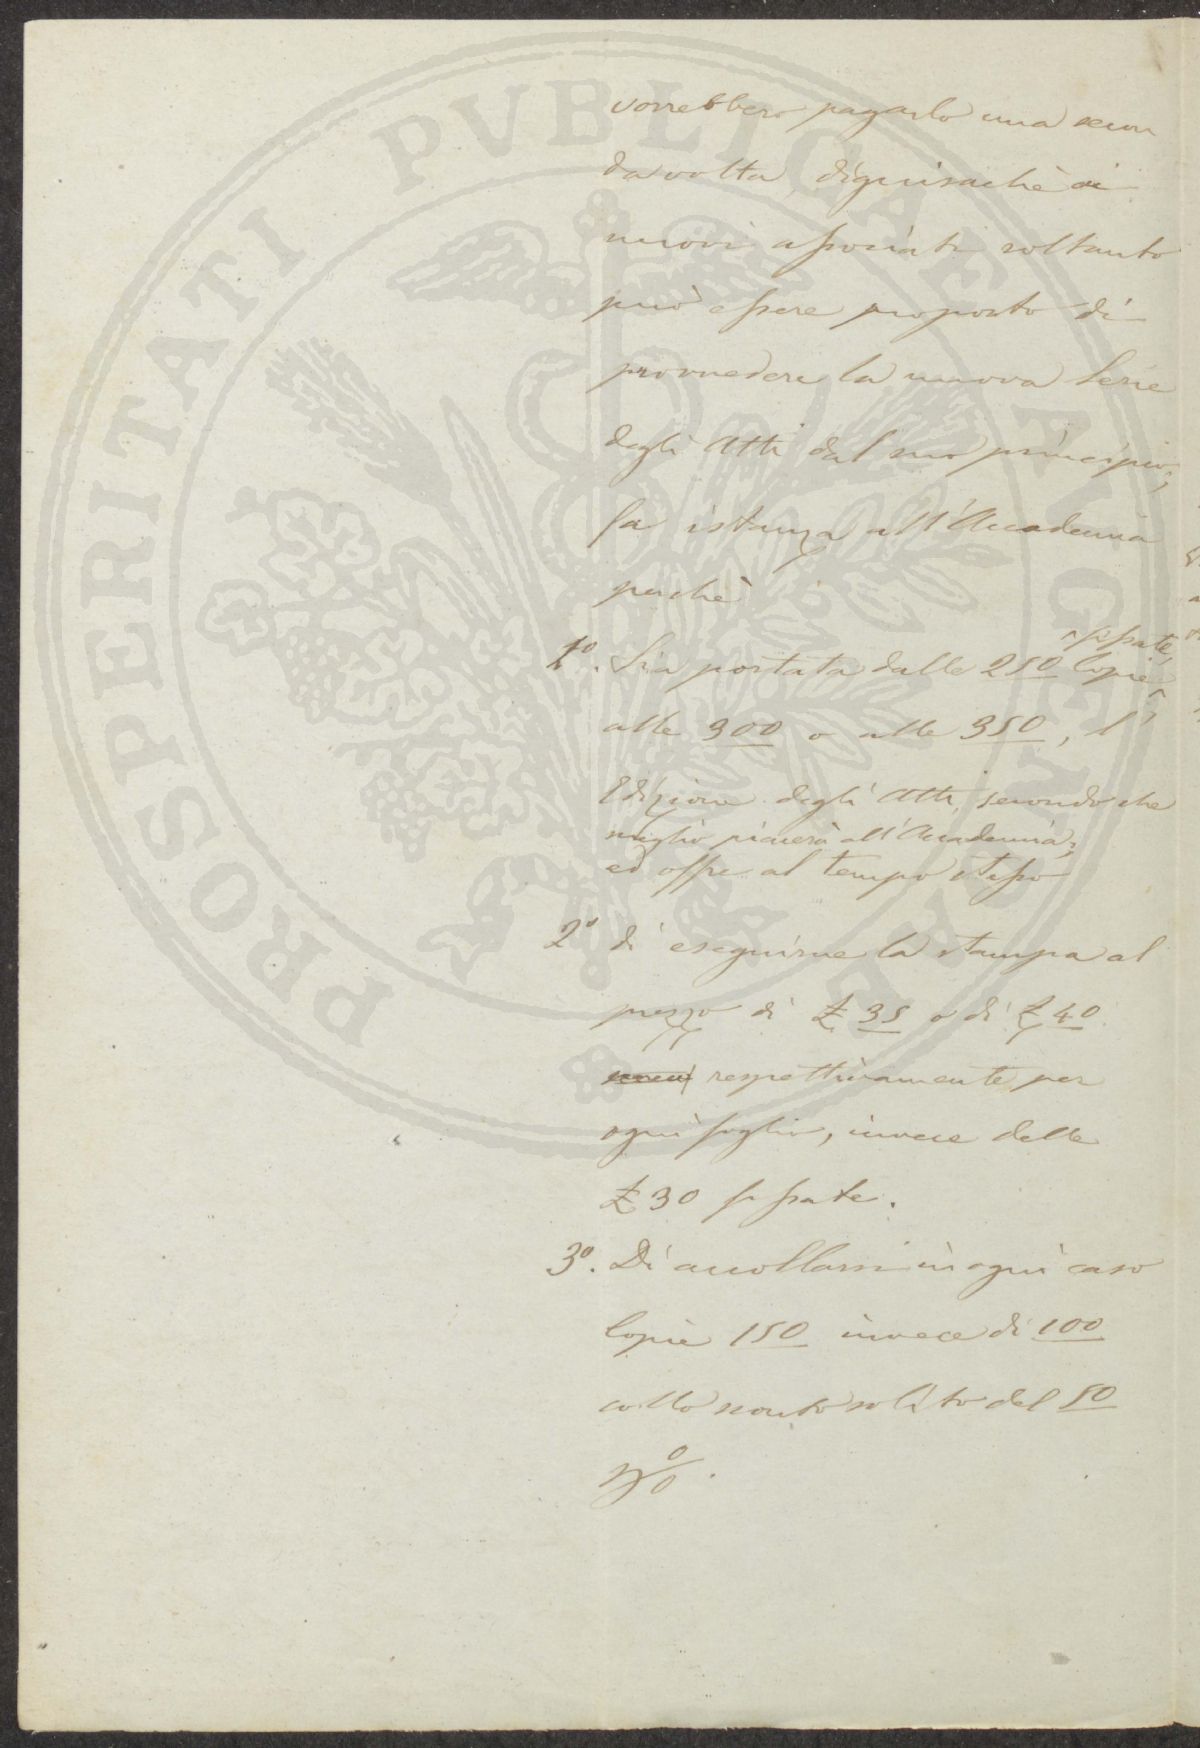 vorrebbero pagarlo una secon
da volta, diguisachè ai
nuovi associati soltanto
può essere proposto di
provvedere la nuova Serie
degli Atti dal suo principio;
fa istanza all'Accademia
perchè
1º. Sia portata dalle 250 Copie
fissate,
alle 300 o alle 350, l'
Edizione degli Atti, secondo che
meglio piacerà all'Accademia;
ed offre al tempo stesso
2º di eseguirne la stampa al
prezzo di £ 35 o di £ 40
respettivamente per
ogni foglio, invece delle
£ 30 fissate.
3º. Di accollarsi in ogni caso
Copie 150 invece di 100
collo sconto solito del 50
p%.
PROSPERITATI PVBLICAE AVGENDAE